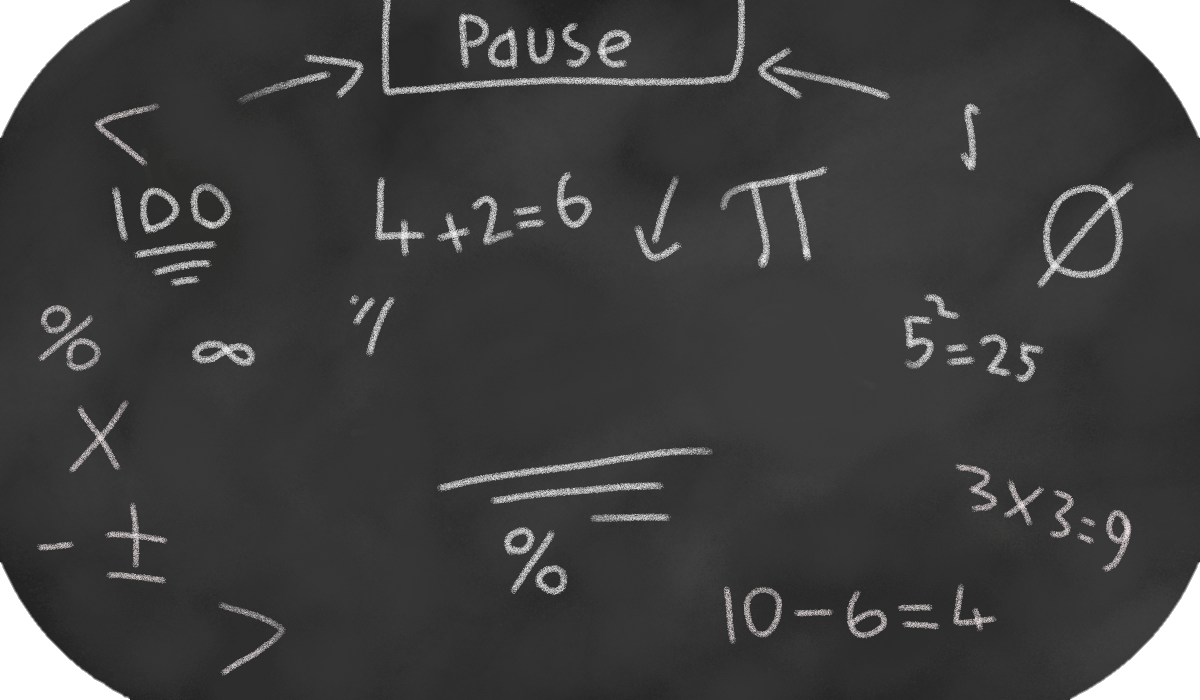 Pause
<
∫
100
4+2=6
π
Ø
%
∞
5²=25
×
3×3=9
- ±
%
10-6=4
>